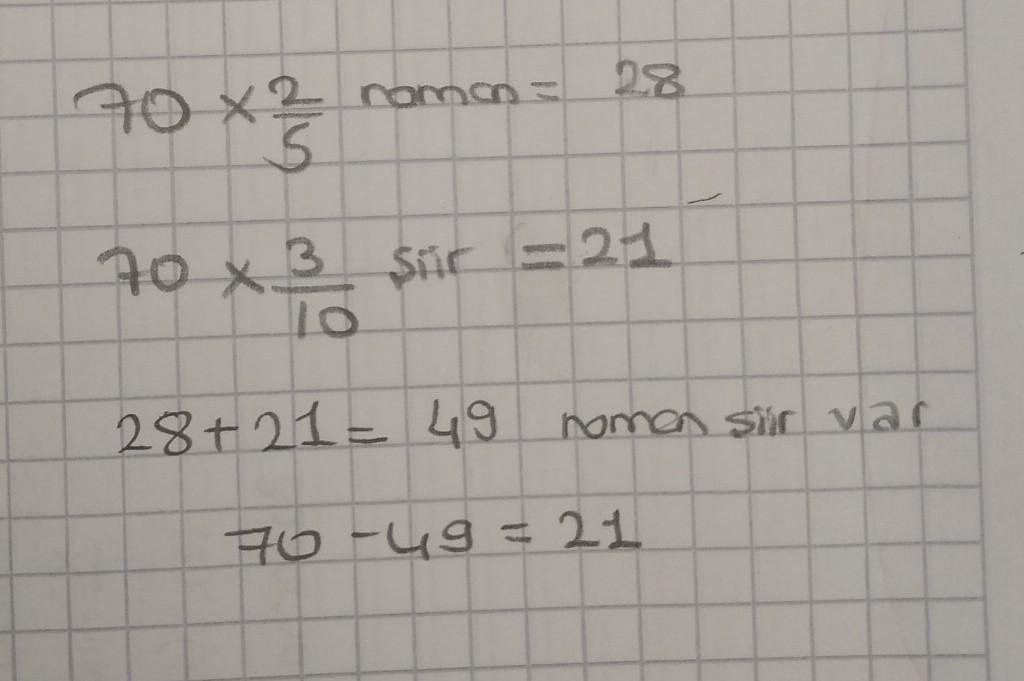 70 × 2/5 roman = 28
70 × 3/10 şiir = 21
28 + 21 = 49 roman şiir var
70 - 49 = 21